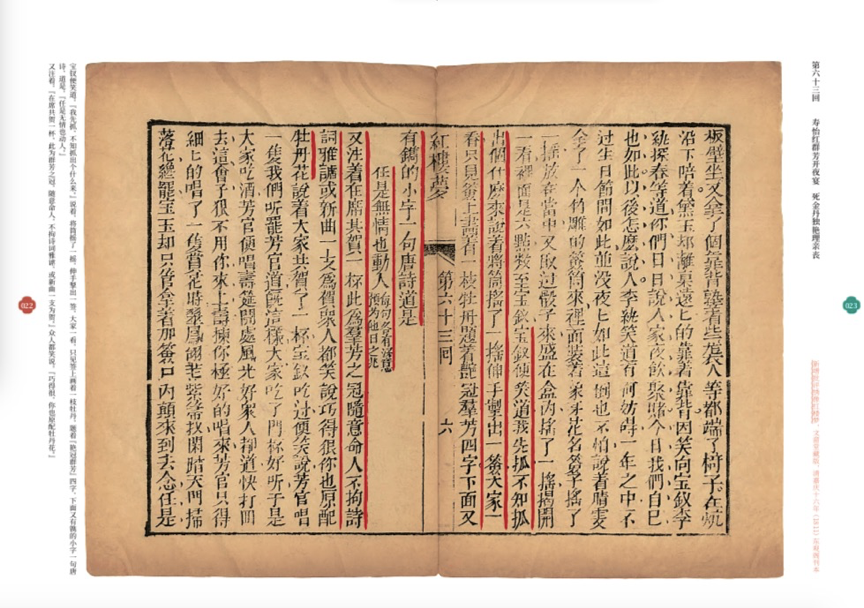 第六十三回 寿怡红群芳开夜宴 死金丹独艳理亲丧
023
板壁坐又拿了個靠背墊着些襲人等都端了椅子在炕
沿下陪着黛玉却離桌遠匕的靠着靠背因笑向宝釵李
紈探春等道你們日日說人家夜飲聚賭今日我們自已
也如此以後怎麽說人李紈笑道有何妨碍一年之中不
过生日節間如此並没夜匕如此這倒也不怕說着晴雯
拿了一个竹雕的籖筒來裡面装着象牙花名籖子搖了
一搖放在當中又取过骰子來盛在盒內搖了一搖揭開
一看裡面是六點数至宝釵宝釵便笑道我先抓不知抓
出個什庅來說着將筒搖了一搖伸手掣出一籖大家一
看只見籖上畫着一枝牡丹題着艷冠羣芳四字下面又
紅樓夢 第六十三回 六
有鐫的小字一句唐詩道是
任是無情也動人
又注着在席共賀一杯此爲羣芳之冠隨意命人不拘詩
詞雅謔或新曲一支爲賀衆人都笑說巧得狠你也原配
牡丹花說着大家共賀了一杯宝釵吃过便笑說芳官唱
一隻我們听罷芳官道旣這樣大家吃了門杯好听于是
大家吃酒芳官便唱壽筵開處風光好衆人都道快打囬
去這會子狠不用你來上壽揀你極好的唱來芳官只得
細匕的唱了一隻賞花時翠鳳翎毛紮箒扠閑踏天門掃
落花纔罷宝玉却只管拿着那籖口內顛來到去念任是
宝钗便笑道，「我先抓，不知抓出个什么来。」说着，将筒摇了一摇，伸手掣出一签，大家一看，只见签上画着一枝牡丹，题着「艳冠群芳」四字，下面又有镌的小字一句唐
诗，道是，「任是无情也动人」
又注着，「在席共贺一杯，此为群芳之冠，随意命人，不拘诗词雅谑，或新曲一支为贺。」众人都笑说，「巧得很，你也原配牡丹花。」
022